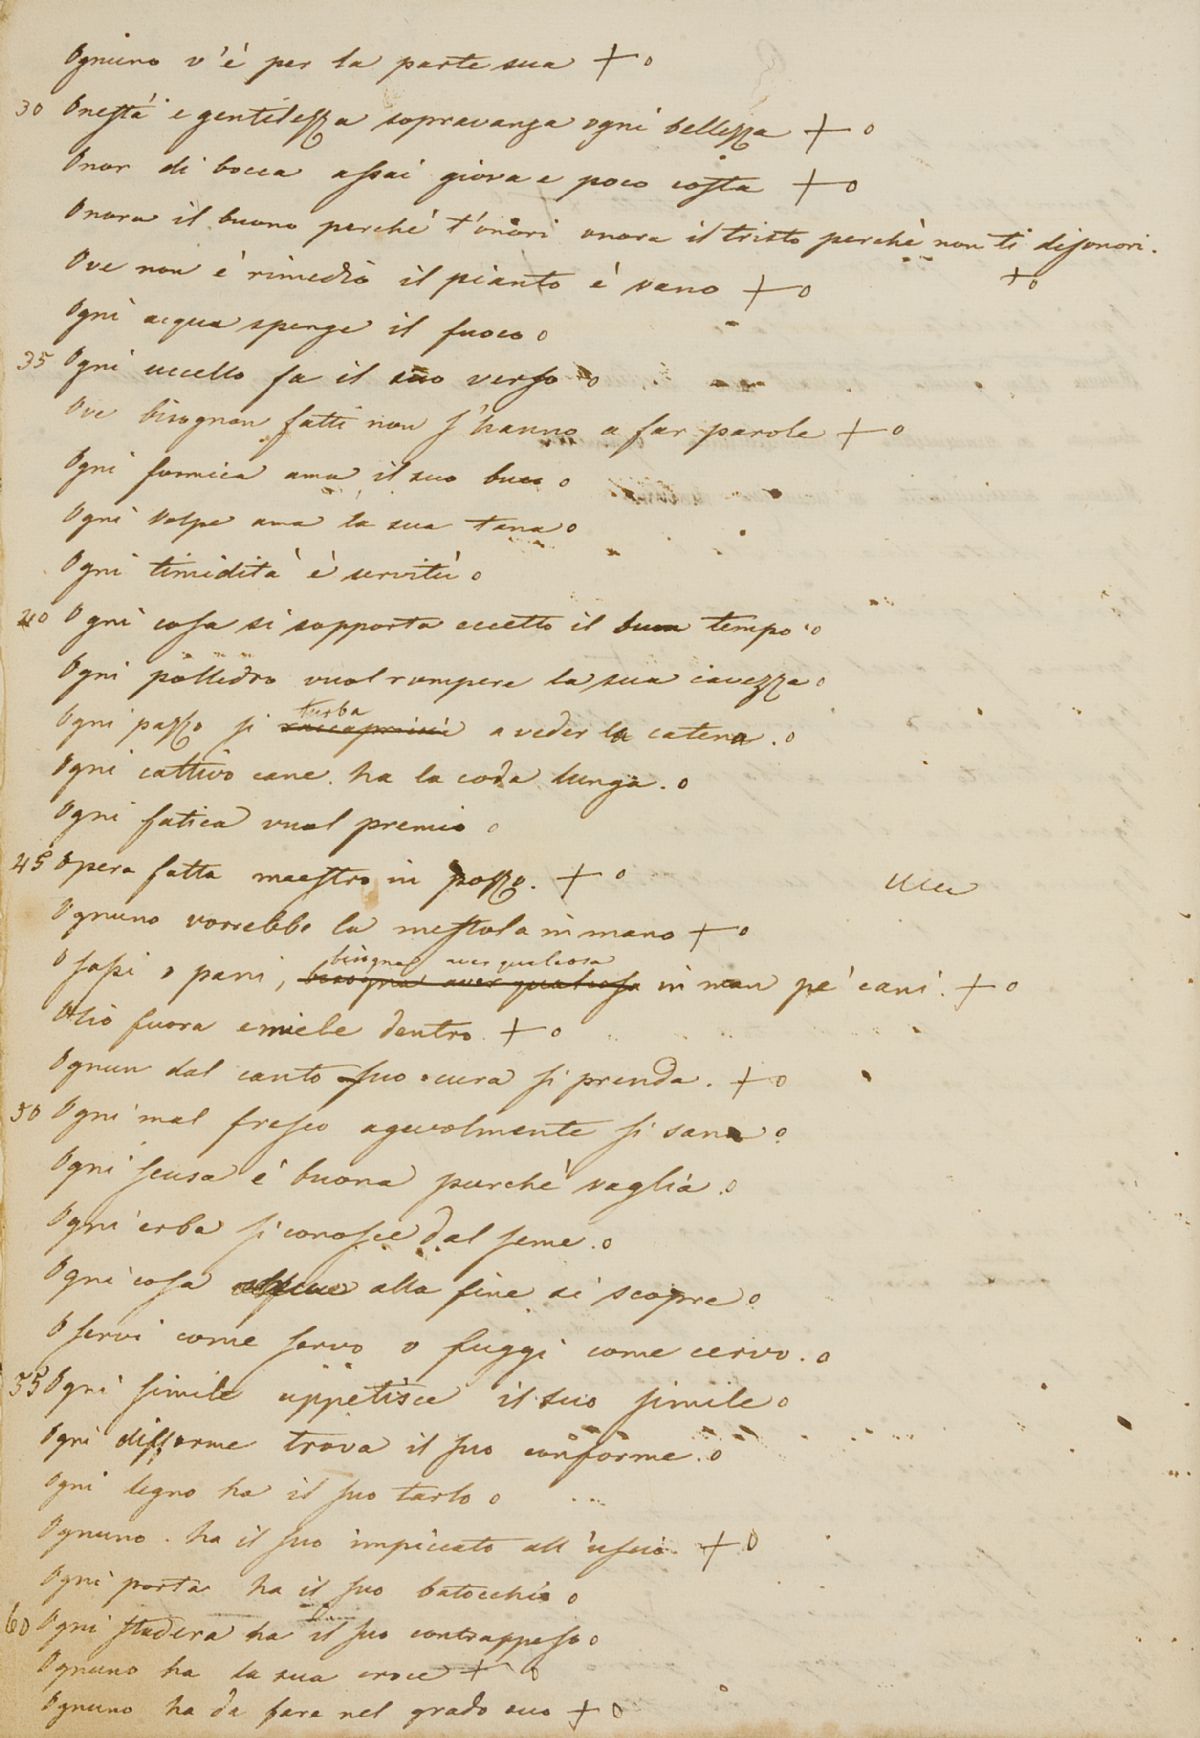 Ognuno v'è per la parte sua + o
30 Onestà e gentilezza sopravanza ogni bellezza + o
Onor di bocca assai giova e poco costa + o
Onora il buono perchè t'onori onora il tristo perchè non ti disonori.
+ o
Ove non è rimedio il pianto è vano + o
Ogni acqua spenge il fuoco o
35 Ogni uccello fa il suo verso o
Ove bisognan fatti non s'hanno a far parole + o
Ogni formica ama il suo buco o
Ogni volpe ama la sua tana o
Ogni timidità è servitù o
40 Ogni cosa si sopporta eccetto il buon tempo o
Ogni polledro vuol rumpere la sua cavezza o
turba
Ogni pazzo si a veder la catena. o
Ogni cattivo cane ha la coda lunga. o
Ogni fatica vuol premio o
45 Opera fatta maestro in pozzo. + o
Ognuno vorrebbe la mestola in mano + o
bisogna aver qualcosa
O sassi o pani, bisogna aver qualcosa in man pe' cani. + o
Olio fuora e miele dentro + o
Ognun dal canto suo cura si prenda. + o
50 Ogni mal fresco agevolmente si sana o
Ogni scusa è buona purchè vaglia. o
Ogni erba si conosce dal seme. o
Ogni cosa alla fine si scopre o
O servi come servo o fuggi come cervo. o
55 Ogni simile appetisce il suo simile o
Ogni difforme trova il suo conforme. o
Ogni legno ha il suo tarlo o
Ognuno ha il suo impiccato all'uscio + o
Ogni porta ha il suo batocchio o
60 Ogni stadera ha il suo contrappeso o
Ognuno ha la sua croce + o
Ognuno ha da fare nel grado suo + o